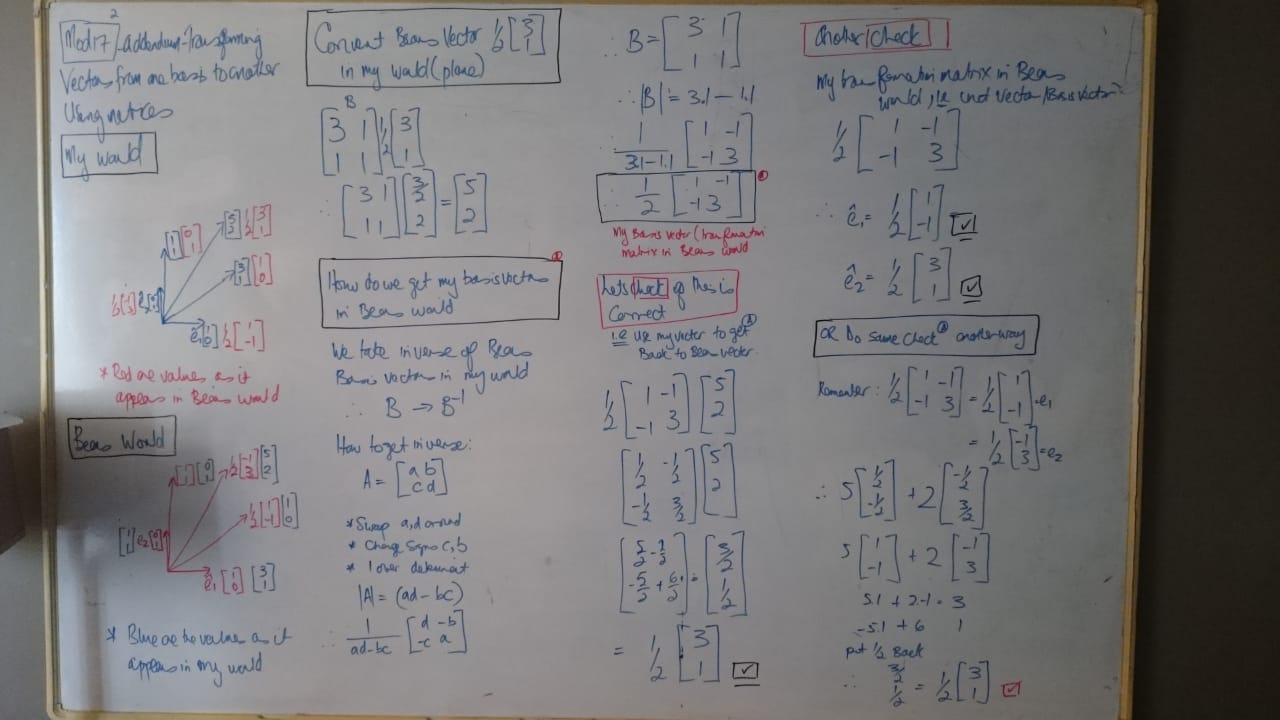 2
Mod 17 - addendum - Transforming
Vectors from one basis to another
Using matrices
My world
[1 1] [0 1]
[5 2] 1/2 [3 1]
[3 1] [1 0]
e1 [1 0] 1/2 [1 -1]
* Red are values as it
appears in Bears world
Bears World
1/2 [-1 3] [5 2]
1/2 [1 -1] [1 0]
[1 1] e2 [0 1]
e1 [1 0] [3 1]
* Blue are the values as it
appears in my world
Convert Bears Vector 1/2 [3 1]
in my world (plane)
B
[3 1 1 1] 1/2 [3 1]
∴ [3 1 1 1] [3/2 2] = [5 2]
How do we get my basis vectors
in Bears world
We take inverse of Bears
Basis vectors in my world
∴ B → B^-1
How to get inverse:
A = [a b c d]
* Swap a,d around
* Change signs c,b
* 1 over determinant
|A| = (ad - bc)
∴ 1/ad-bc [d -b -c a]
∴ B = [3 1 1 1]
∴ |B| = 3.1 - 1.1
∴ 1/3.1-1.1 [1 -1 -1 3]
∴ 1/2 [1 -1 -1 3]
My Basis vector (transformation
matrix in Bears world
Lets check if this is
Correct
i.e use my vector to get
Back to Bear vector.
1/2 [1 -1 -1 3] [5 2]
[1/2 -1/2 -1/2 3/2] [5 2]
[5/2 - 2/2 -5/2 + 6/2] = [3/2 1/2]
= 1/2 [3 1] ✓
Another check
My transformation matrix in Bears
world, ie unit vector/Basis vector
1/2 [1 -1 -1 3]
∴ ê1 = 1/2 [1 -1] ✓
ê2 = 1/2 [3 1] ✓
OR Do same check another way
Remember: 1/2 [1 -1 -1 3] = 1/2 [1 -1] = e1
= 1/2 [-1 3] = e2
∴ 5 [1/2 -1/2] + 2 [-1/2 3/2]
5 [1 -1] + 2 [-1 3]
5.1 + 2.-1 = 3
-5.1 + 6 1
put 1/2 Back
∴ 3/2 1/2 = 1/2 [3 1] ✓